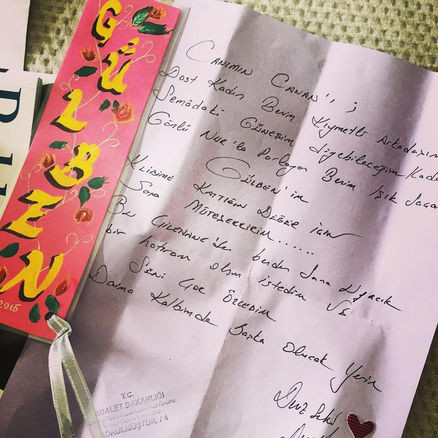 GÜLBEN
2015
CANIMIN CANAN'I ;
Dost Kadın Benim Kıymetli Arkadaşım
Semadaki Güneşim diyebileceğim Kadar
Gönlü Nur'la Parlayan Benim Işık Saçan
GÜLBEN'im
Klibime KATTIĞIN DEĞER İÇİN
Sana MÜTEŞEKKİRİM......
Bu benden Sana ufacık
bir hatıram olsun istedim VE
Seni Çok Özledim
Daima Kalbimde Başka Olacak Yerin
T.C.
ADALET BAKANLIĞI